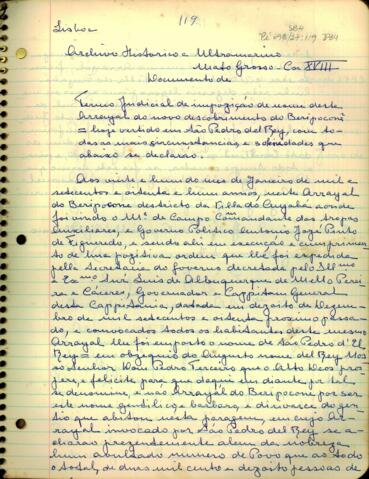 119
Lisboa
Archivo Historico Ultramarino
Mato Grosso - Cx XVIII
Documento de
Termo Judicial de impozição de nome deste
Arrayal do novo descobrimento do Beripoconé
= hoje vertido em São Pedro del Rey, com to-
das as mais circunstancias, e solenidades que
abaixo se declarão.
Aos vinte e hum do mes de Janeiro de mil e
setecentos e oitenta e hum annos, neste Arrayal
do Beripocone destricto da Villa do Cuyabá aonde
foi vindo o M.e de Campo Com.e Comandante das tropas
Auxiliares, e Governo Politico Antonio José Pinto
de Figueredo, e sendo ahi em execução e cumprimen-
to de huma pozitiva ordem que lhe foi expedida
pella Secretaria do Governo decretada pelo Ill.mo
e Ex.mo Snr. Luis de Albuquerque de Mello Perei-
ra e Cáceres, Governador e Cappitam General
desta Cappitania, datada em dezoito de Dezem-
bro de mil setecentos e oitenta proximo passa-
do, e convocados todos os habitantes deste mesmo
Arrayal lhe foi emposto o nome de São Pedro d'El
Rey = em obzequio do Augusto nome del Rey Nos-
so Senhor Dom Pedro Terceiro que o Alto Deos pros-
pere, e felicite para que daqui em diante por tal
se denomine, e não Arrayal do Beripocone por ser
este nome gentilico, e barbaro, e
gentio que abitou esta paragem, em cujo Ar-
rayal invocado por São Pedro del Rey se a-
charão prezentemente alem da nobreza
hum abultado numero de Povo que ao todo
o total, de duas mil cento e dezoito pessoas de